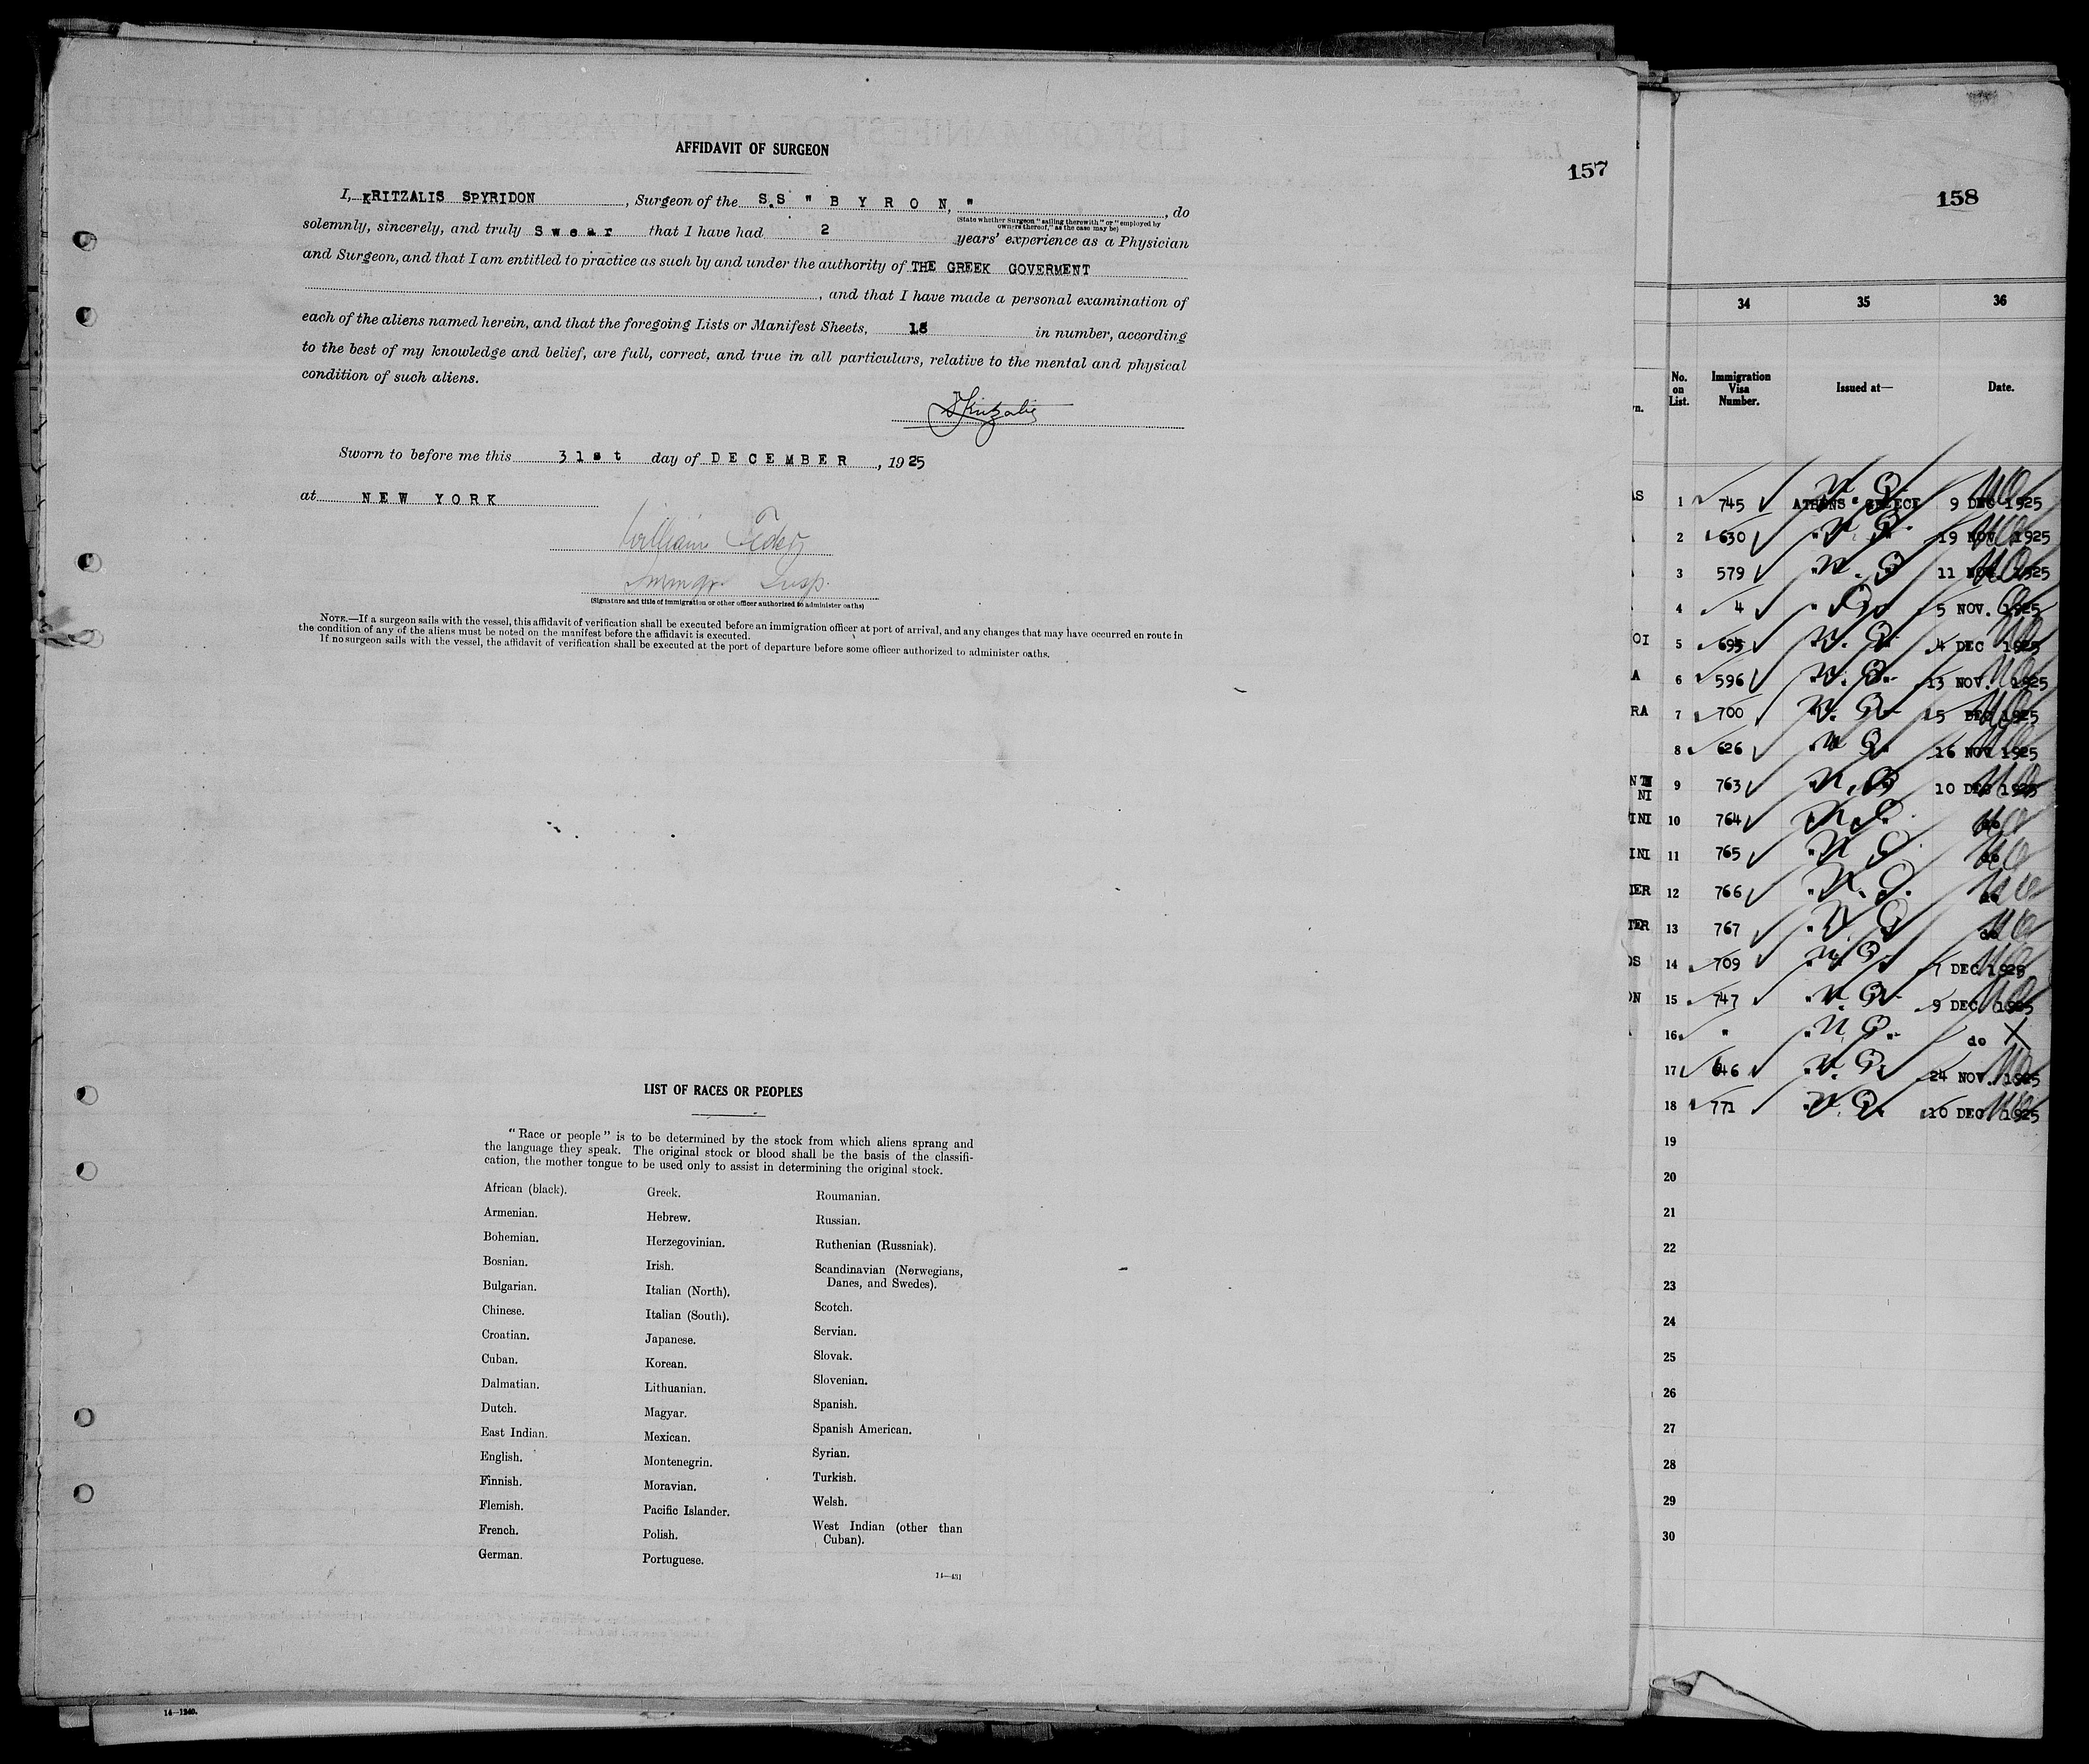 AFFIDAVIT OF SURGEON
157
I, KRITZALIS SPYRIDON, Surgeon of the S.S " B Y R O N, ", do
(State whether Surgeon "sailing therewith" or "employed by
owners thereof," as the case may be)
solemnly, sincerely, and truly Swear that I have had 2 years' experience as a Physician
and Surgeon, and that I am entitled to practice as such by and under the authority of THE GREEK GOVERMENT
, and that I have made a personal examination of
each of the aliens named herein, and that the foregoing Lists or Manifest Sheets, 18 in number, according
to the best of my knowledge and belief, are full, correct, and true in all particulars, relative to the mental and physical
condition of such aliens.
Sworn to before me this 31st day of DECEMBER, 1925
at NEW YORK
William
Immgr Insp.
(Signature and title of immigration or other officer authorized to administer oaths)
NOTE.—If a surgeon sails with the vessel, this affidavit of verification shall be executed before an immigration officer at port of arrival, and any changes that may have occurred en route in
the condition of any of the aliens must be noted on the manifest before the affidavit is executed.
If no surgeon sails with the vessel, the affidavit of verification shall be executed at the port of departure before some officer authorized to administer oaths.
LIST OF RACES OR PEOPLES
"Race or people" is to be determined by the stock from which aliens sprang and
the language they speak. The original stock or blood shall be the basis of the classifi-
cation, the mother tongue to be used only to assist in determining the original stock.
African (black).
Armenian.
Bohemian.
Bosnian.
Bulgarian.
Chinese.
Croatian.
Cuban.
Dalmatian.
Dutch.
East Indian.
English.
Finnish.
Flemish.
French.
German.
Greek.
Hebrew.
Herzegovinian.
Irish.
Italian (North).
Italian (South).
Japanese.
Korean.
Lithuanian.
Magyar.
Mexican.
Montenegrin.
Moravian.
Pacific Islander.
Polish.
Portuguese.
Roumanian.
Russian.
Ruthenian (Russniak).
Scandinavian (Norwegians,
Danes, and Swedes).
Scotch.
Servian.
Slovak.
Slovenian.
Spanish.
Spanish American.
Syrian.
Turkish.
Welsh.
West Indian (other than
Cuban).
14—431
14—1240.
158
34 35 36
No. on List. Immigration Visa Number. Issued at— Date.
1 745 ATHENS GREECE 9 DEC 1925
2 630 19 NOV. 1925
3 579 11 NOV. 1925
4 4 5 NOV. 1925
5 695 4 DEC 1925
6 596 13 NOV. 1925
7 700 5 DEC 1925
8 626 16 NOV 1925
9 763 10 DEC 1925
10 764 do
11 765 do
12 766 do
13 767 do
14 709 7 DEC 1925
15 747 9 DEC. 1925
16 " do X
17 646 24 NOV. 1925
18 771 10 DEC 1925
19
20
21
22
23
24
25
26
27
28
29
30